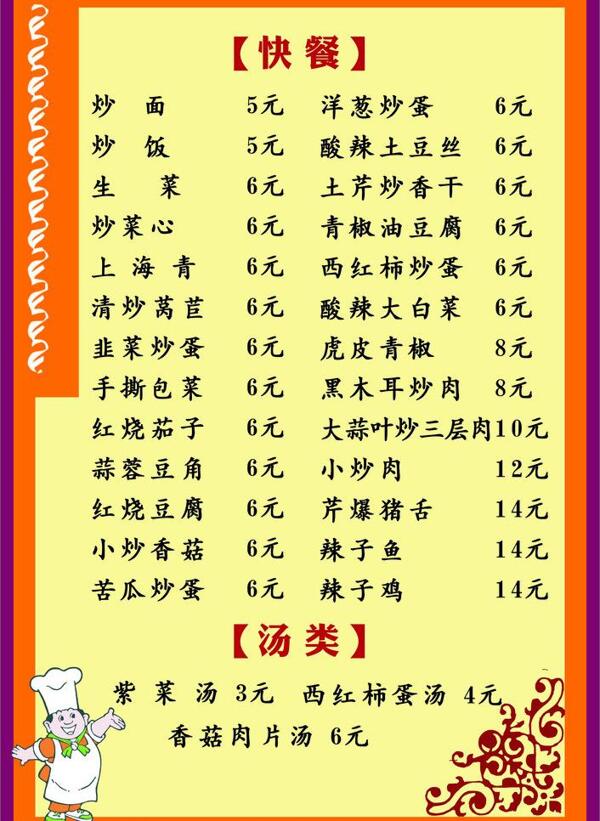 【快餐】
炒面 5元 洋葱炒蛋 6元
炒饭 5元 酸辣土豆丝 6元
生菜 6元 土芹炒香干 6元
炒菜心 6元 青椒油豆腐 6元
上海青 6元 西红柿炒蛋 6元
清炒莴苣 6元 酸辣大白菜 6元
韭菜炒蛋 6元 虎皮青椒 8元
手撕包菜 6元 黑木耳炒肉 8元
红烧茄子 6元 大蒜叶炒三层肉 10元
蒜蓉豆角 6元 小炒肉 12元
红烧豆腐 6元 芹爆猪舌 14元
小炒香菇 6元 辣子鱼 14元
苦瓜炒蛋 6元 辣子鸡 14元
【汤类】
紫菜汤 3元 西红柿蛋汤 4元
香菇肉片汤 6元